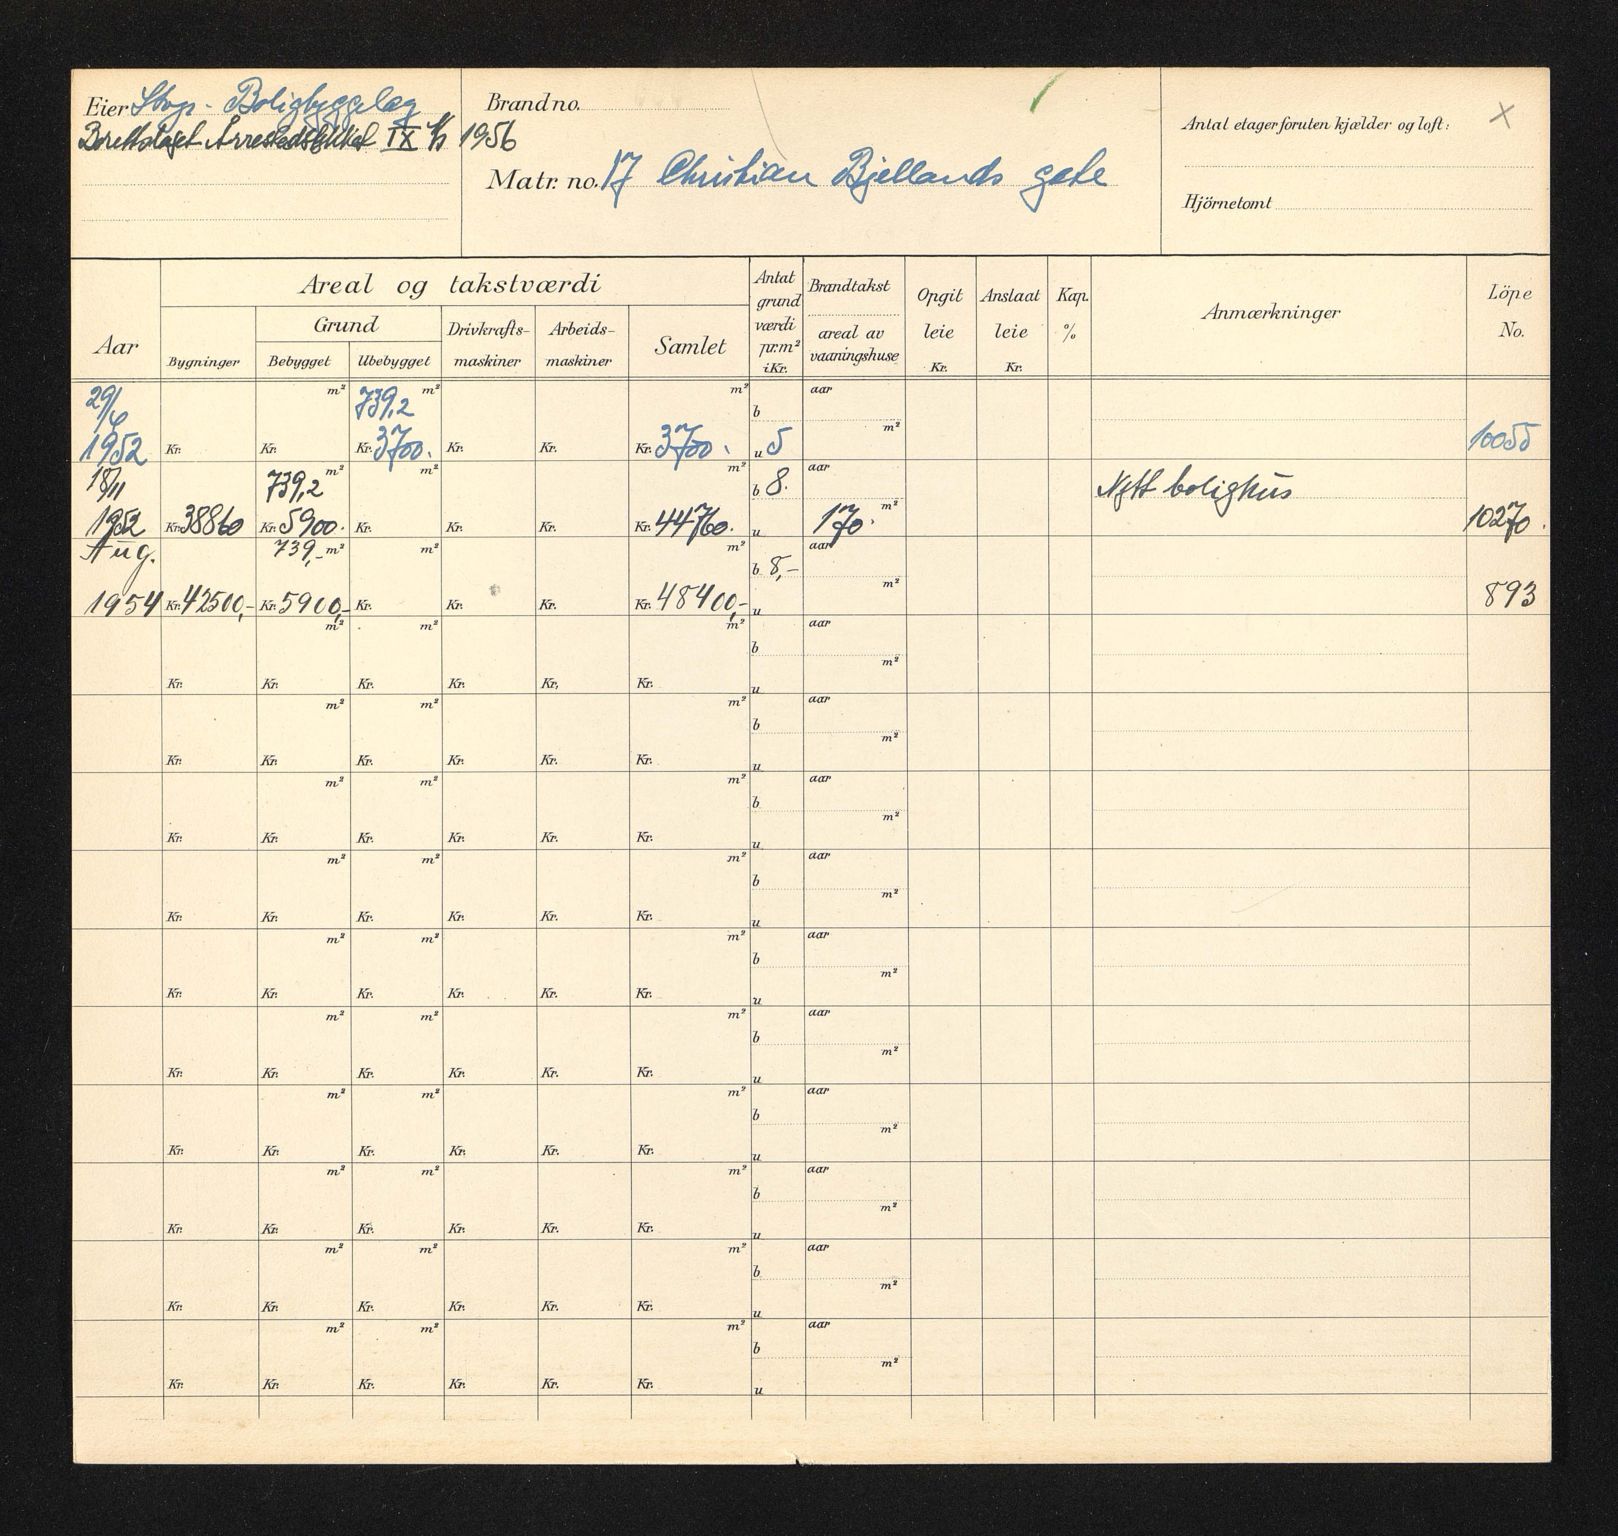 Eier Stvgr. Boligbyggelag
Borettslaget Årrestadstykket IX 1956
Brand no.
Matr. no. 17 Christian Bjellands gate
Antal etager foruten kjælder og loft: x
Hjörnetomt
Aar
Areal og takstværdi
Bygninger
Grund
Bebygget
Ubebygget
Drivkrafts-
maskiner
Arbeids-
maskiner
Samlet
Antat
grund
værdi
pr.m²
i Kr.
Brandtakst
areal av
vaaningshuse
Opgit
leie
Kr.
Anslaat
leie
Kr.
Kap.
%
Anmærkninger
Löpe
No.
29/ m² 739,2 m² m² b aar
1952 Kr. Kr. Kr. 3700. Kr. Kr. Kr. 3700. u 5 m² 10055
18/11 739,2 m² m² m² b 8. aar Nytt bolighus
1952 Kr. 38860 Kr. 5900. Kr. Kr. Kr. Kr. 44760. u 170. m² 10270.
Aug. 739,- m² m² m² b 8,- aar
1954 Kr. 42500,- Kr. 5900,- Kr. Kr. Kr. Kr. 48400,- u m² 893
m² m² m² b aar
Kr. Kr. Kr. Kr. Kr. Kr. u m²
m² m² m² b aar
Kr. Kr. Kr. Kr. Kr. Kr. u m²
m² m² m² b aar
Kr. Kr. Kr. Kr. Kr. Kr. u m²
m² m² m² b aar
Kr. Kr. Kr. Kr. Kr. Kr. u m²
m² m² m² b aar
Kr. Kr. Kr. Kr. Kr. Kr. u m²
m² m² m² b aar
Kr. Kr. Kr. Kr. Kr. Kr. u m²
m² m² m² b aar
Kr. Kr. Kr. Kr. Kr. Kr. u m²
m² m² m² b aar
Kr. Kr. Kr. Kr. Kr. Kr. u m²
m² m² m² b aar
Kr. Kr. Kr. Kr. Kr. Kr. u m²
m² m² m² b aar
Kr. Kr. Kr. Kr. Kr. Kr. u m²